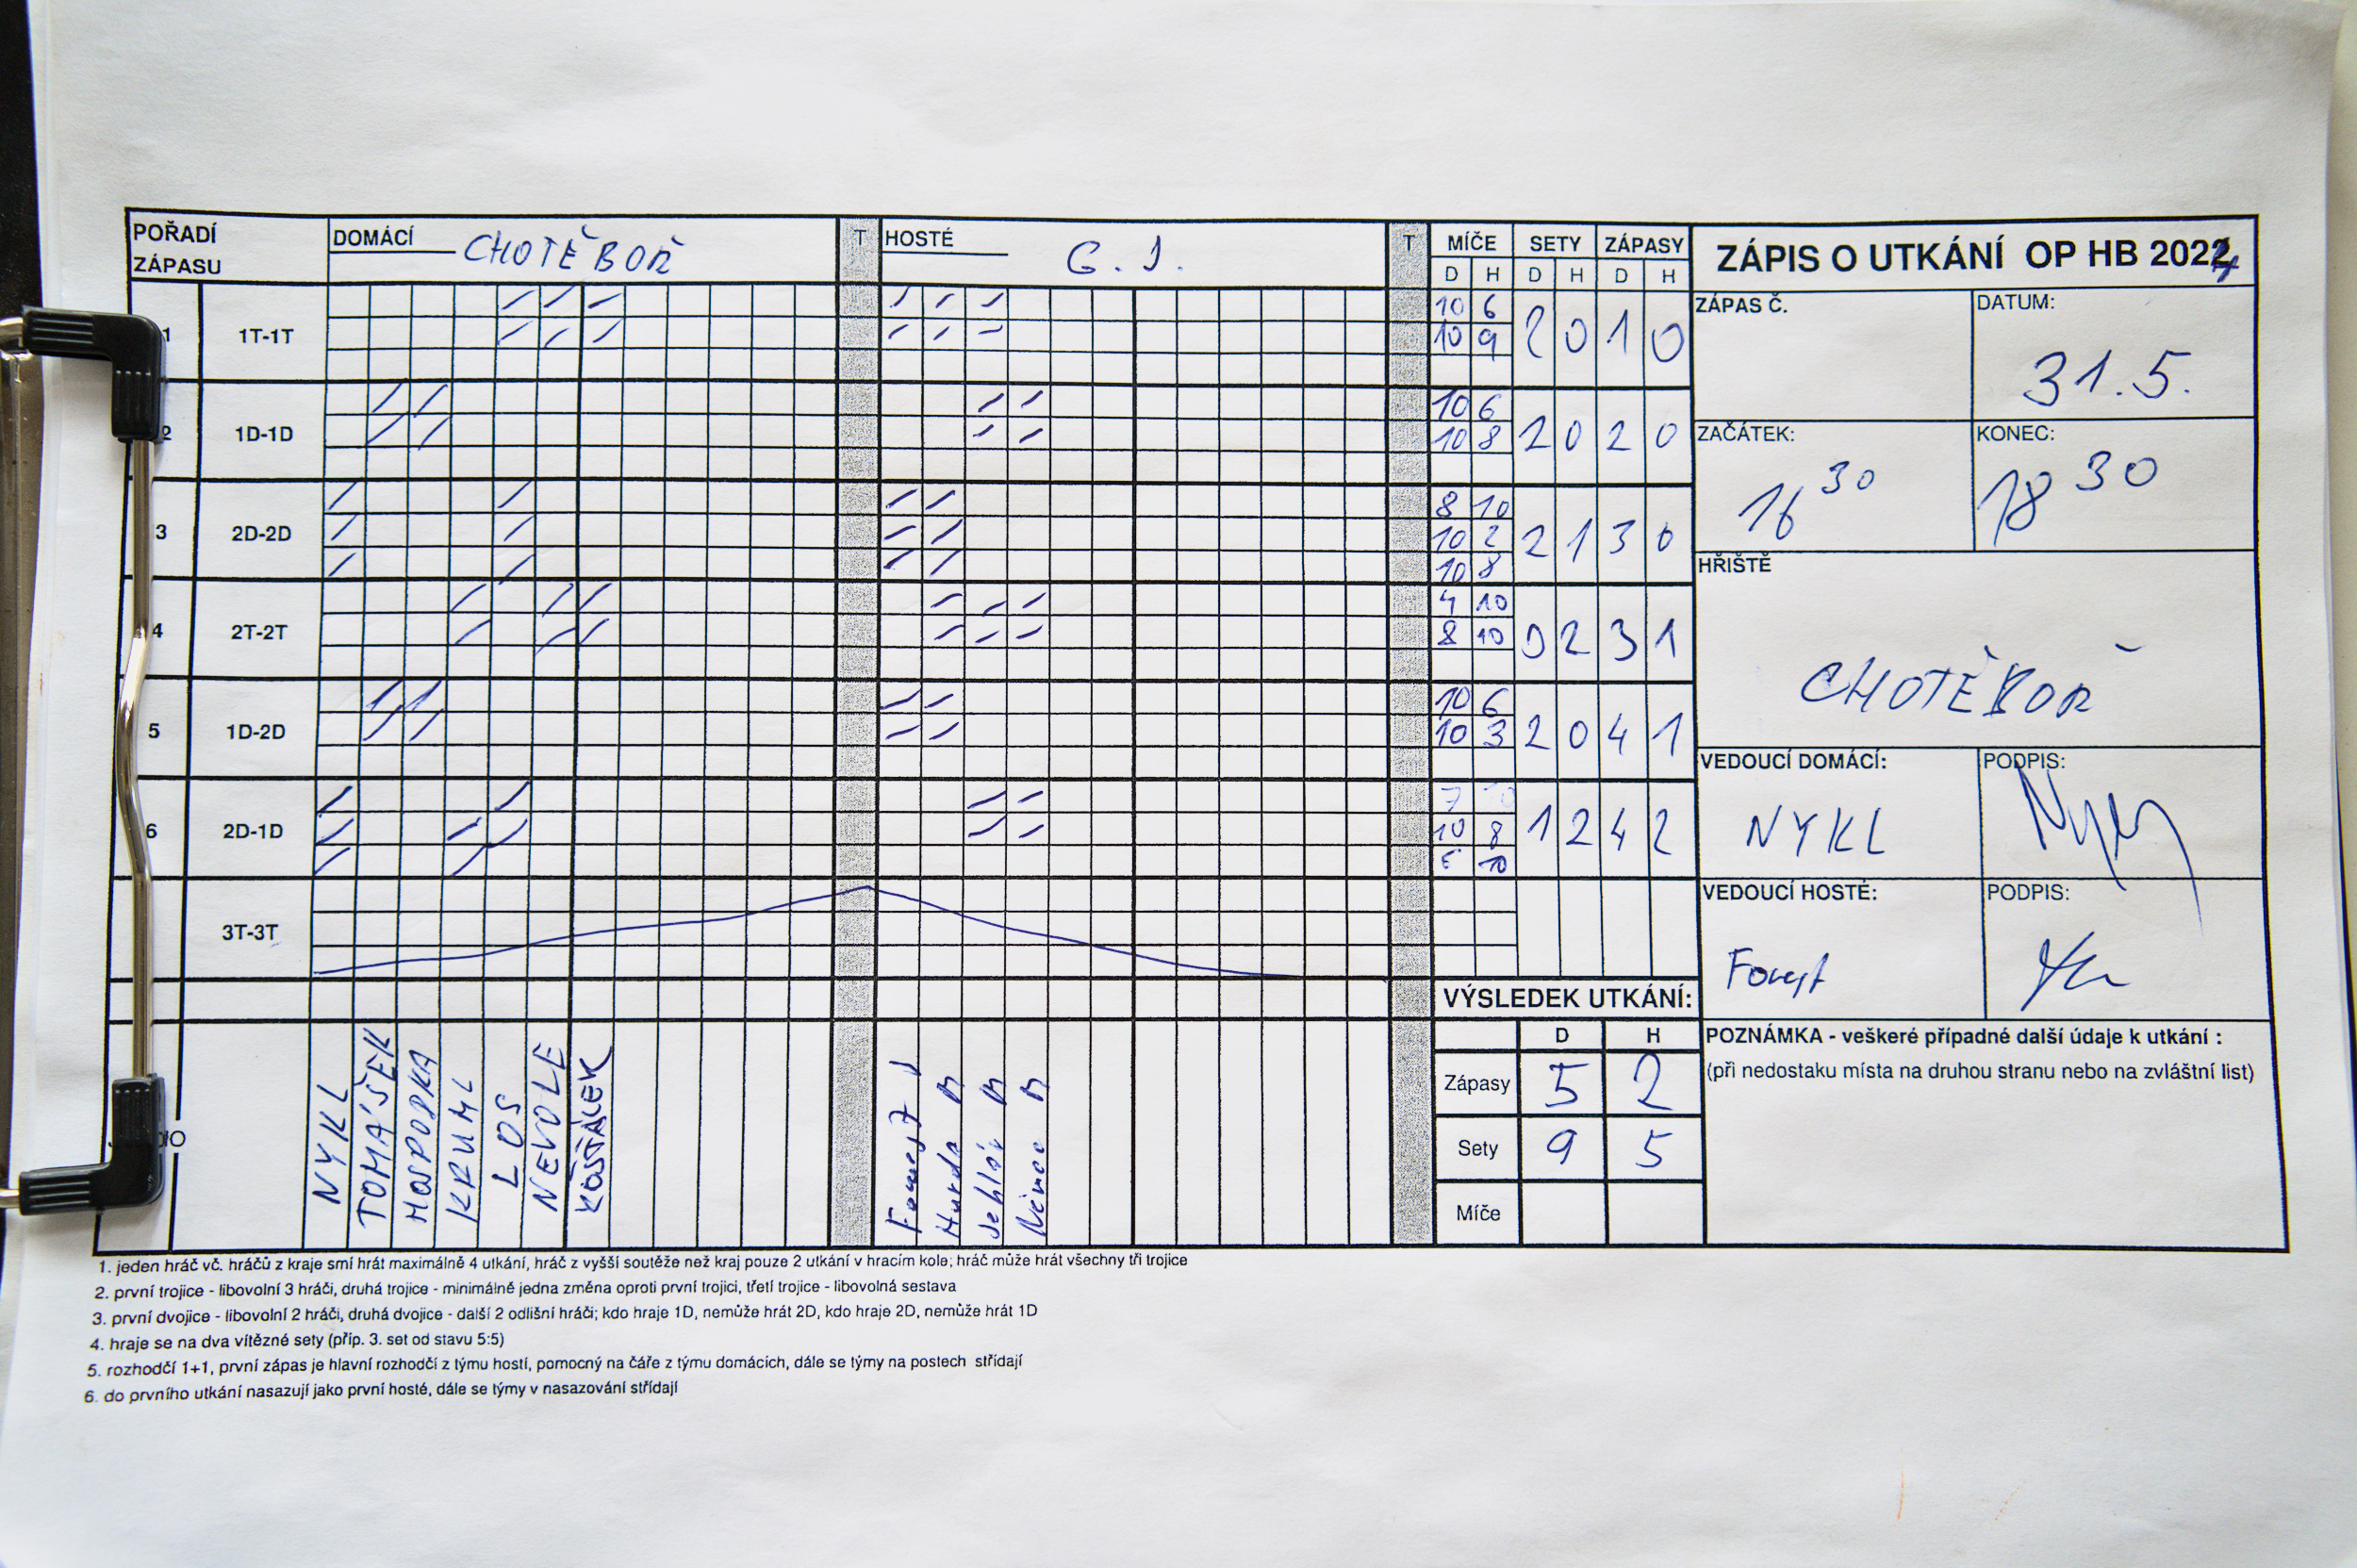 POŘADÍ ZÁPASU DOMÁCÍ CHOTĚBOŘ T HOSTÉ G. J. T MÍČE SETY ZÁPASY
D H D H D H
1 1T-1T 10 6 2 0 1 0
10 9
2 1D-1D 10 6 2 0 2 0
10 8
3 2D-2D 8 10 2 1 3 0
10 2
10 8
4 2T-2T 4 10 0 2 3 1
8 10
5 1D-2D 10 6 2 0 4 1
10 3
6 2D-1D 7 10 1 2 4 2
10 8
5 10
3T-3T
NYKL
TOMÁŠEK
HOSPODKA
KRUML
LOS
NEVOLE
KOŠŤÁLEK
ZÁPIS O UTKÁNÍ OP HB 2024
ZÁPAS Č. DATUM:
31.5.
ZAČÁTEK: KONEC:
16 30 18 30
HŘIŠTĚ
CHOTĚBOŘ
VEDOUCÍ DOMÁCÍ: PODPIS:
NYKL
VEDOUCÍ HOSTÉ: PODPIS:
VÝSLEDEK UTKÁNÍ:
D H
Zápasy 5 2
Sety 9 5
Míče
POZNÁMKA - veškeré případné další údaje k utkání :
(při nedostaku místa na druhou stranu nebo na zvláštní list)
1. jeden hráč vč. hráčů z kraje smí hrát maximálně 4 utkání, hráč z vyšší soutěže než kraj pouze 2 utkání v hracím kole; hráč může hrát všechny tři trojice
2. první trojice - libovolní 3 hráči, druhá trojice - minimálně jedna změna oproti první trojici, třetí trojice - libovolná sestava
3. první dvojice - libovolní 2 hráči, druhá dvojice - další 2 odlišní hráči; kdo hraje 1D, nemůže hrát 2D, kdo hraje 2D, nemůže hrát 1D
4. hraje se na dva vítězné sety (příp. 3. set od stavu 5:5)
5. rozhodčí 1+1, první zápas je hlavní rozhodčí z týmu hostí, pomocný na čáře z týmu domácích, dále se týmy na postech střídají
6. do prvního utkání nasazují jako první hosté, dále se týmy v nasazování střídají